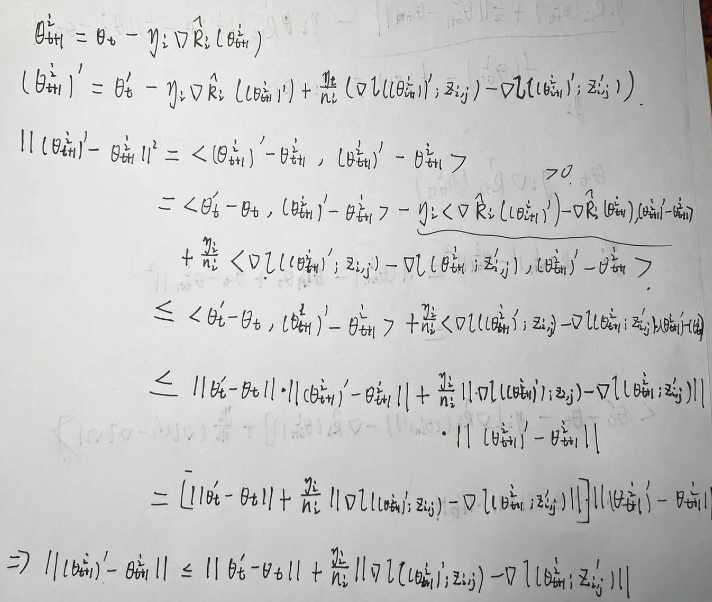 θ_{t+1}^i = θ_t − η_i ∇R̂_i (θ_{t+1}^i)
(θ_{t+1}^i)' = θ_t' − η_i ∇R̂_i ((θ_{t+1}^i)') + η_i/n_i (∇l((θ_{t+1}^i)'; z_{i,j}) − ∇l((θ_{t+1}^i)'; z'_{i,j})).
||(θ_{t+1}^i)' − θ_{t+1}^i||² = <(θ_{t+1}^i)' − θ_{t+1}^i, (θ_{t+1}^i)' − θ_{t+1}^i>
>0?
= <θ_t' − θ_t, (θ_{t+1}^i)' − θ_{t+1}^i> − η_i <∇R̂_i ((θ_{t+1}^i)') − ∇R̂_i (θ_{t+1}^i), (θ_{t+1}^i)' − θ_{t+1}^i>
+ η_i/n_i <∇l((θ_{t+1}^i)'; z_{i,j}) − ∇l(θ_{t+1}^i; z'_{i,j}), (θ_{t+1}^i)' − θ_{t+1}^i>
≤ <θ_t' − θ_t, (θ_{t+1}^i)' − θ_{t+1}^i> + η_i/n_i <∇l((θ_{t+1}^i)'; z_{i,j}) − ∇l(θ_{t+1}^i; z'_{i,j}), (θ_{t+1}^i)' −
≤ ||θ_t' − θ_t|| · ||(θ_{t+1}^i)' − θ_{t+1}^i|| + η_i/n_i ||∇l((θ_{t+1}^i)'; z_{i,j}) − ∇l(θ_{t+1}^i; z'_{i,j})||
· ||(θ_{t+1}^i)' − θ_{t+1}^i||
= [||θ_t' − θ_t|| + η_i/n_i ||∇l((θ_{t+1}^i)'; z_{i,j}) − ∇l(θ_{t+1}^i; z'_{i,j})||] ||(θ_{t+1}^i)' − θ_{t+1}^i||
⇒ ||(θ_{t+1}^i)' − θ_{t+1}^i|| ≤ ||θ_t' − θ_t|| + η_i/n_i ||∇l((θ_{t+1}^i)'; z_{i,j}) − ∇l(θ_{t+1}^i; z'_{i,j})||